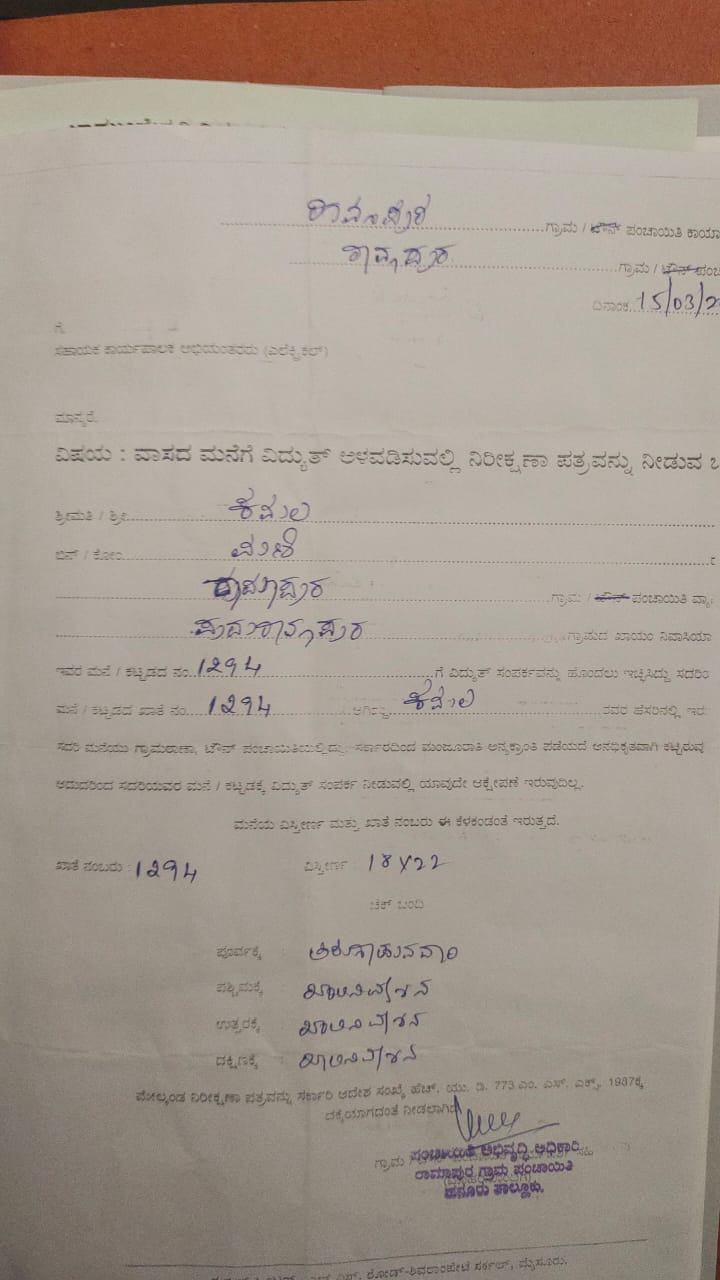 ರಾಮಾಪುರ ಗ್ರಾಮ / ಟೌನ್ ಪಂಚಾಯಿತಿ
ರಾಮಾಪುರ ಗ್ರಾಮ / ಟೌನ್
ದಿನಾಂಕ 15/03/2
ಗೆ,
ಸಹಾಯಕ ಕಾರ್ಯಪಾಲಕ ಅಭಿಯಂತರರು (ಎಲೆಕ್ಟ್ರಿಕಲ್)
ಮಾನ್ಯರೆ,
ವಿಷಯ : ವಾಸದ ಮನೆಗೆ ವಿದ್ಯುತ್ ಅಳವಡಿಸುವಲ್ಲಿ ನಿರೀಕ್ಷಣಾ ಪತ್ರವನ್ನು ನೀಡುವ
ಶ್ರೀಮತಿ / ಶ್ರೀ ಕಮಲ
ಬಿನ್ / ಕೋಂ ಮಣಿ
ರಾಮಾಪುರ ಗ್ರಾಮ / ಟೌನ್ ಪಂಚಾಯಿತಿ
ಗ್ರಾಮದ ಖಾಯಂ ನಿವಾಸಿಯಾ
ಇವರ ಮನೆ / ಕಟ್ಟಡದ ನಂ. 1294 ಗೆ ವಿದ್ಯುತ್ ಸಂಪರ್ಕವನ್ನು ಹೊಂದಲು ಇಚ್ಛಿಸಿದ್ದು ಸದರಿಂ
ಮನೆ / ಕಟ್ಟಡದ ಖಾತೆ ನಂ. 1294 ಆಗಿದ್ದು ಕಮಲ ರವರ ಹೆಸರಿನಲ್ಲಿ ಇರು
ಸದರಿ ಮನೆಯು ಗ್ರಾಮಠಾಣಾ, ಟೌನ್ ಪಂಚಾಯಿತಿಯಲ್ಲಿದ್ದು, ಸರ್ಕಾರದಿಂದ ಮಂಜೂರಾತಿ ಅನ್ಯಕ್ರಾಂತಿ ಪಡೆಯದೆ ಅನಧಿಕೃತವಾಗಿ ಕಟ್ಟಿರುವ
ಆದುದರಿಂದ ಸದರಿಯವರ ಮನೆ / ಕಟ್ಟಡಕ್ಕೆ ವಿದ್ಯುತ್ ಸಂಪರ್ಕ ನೀಡುವಲ್ಲಿ ಯಾವುದೇ ಆಕ್ಷೇಪಣೆ ಇರುವುದಿಲ್ಲ.
ಮನೆಯ ವಿಸ್ತೀರ್ಣ ಮತ್ತು ಖಾತೆ ನಂಬರು ಈ ಕೆಳಕಂಡಂತೆ ಇರುತ್ತದೆ.
ಖಾತೆ ನಂಬರು : 1294 ವಿಸ್ತೀರ್ಣ 18X22
ಚೆಕ್ ಬಂದಿ
ಪೂರ್ವಕ್ಕೆ :
ಪಶ್ಚಿಮಕ್ಕೆ : ಖಾಲಿನಿವೇಶನ
ಉತ್ತರಕ್ಕೆ : ಖಾಲಿನಿವೇಶನ
ದಕ್ಷಿಣಕ್ಕೆ : ಖಾಲಿನಿವೇಶನ
ಮೇಲ್ಕಂಡ ನಿರೀಕ್ಷಣಾ ಪತ್ರವನ್ನು ಸರ್ಕಾರಿ ಆದೇಶ ಸಂಖ್ಯೆ ಹೆಚ್. ಯು. ಡಿ. 773 ಎಂ. ಎಸ್. ಎಕ್ಸ್. 1987ಕ್ಕೆ
ದಕ್ಕೆಯಾಗದಂತೆ ನೀಡಲಾಗಿದೆ
ಗ್ರಾಮ
ಪಂಚಾಯಿತಿ ಅಭಿವೃದ್ಧಿ ಅಧಿಕಾರಿ,
ರಾಮಾಪುರ ಗ್ರಾಮ ಪಂಚಾಯಿತಿ
ಹನೂರು ತಾಲ್ಲೂಕು.
ರೋಡ್-ಶಿವರಾಂಪೇಟೆ ಸರ್ಕಲ್, ಮೈಸೂರು.